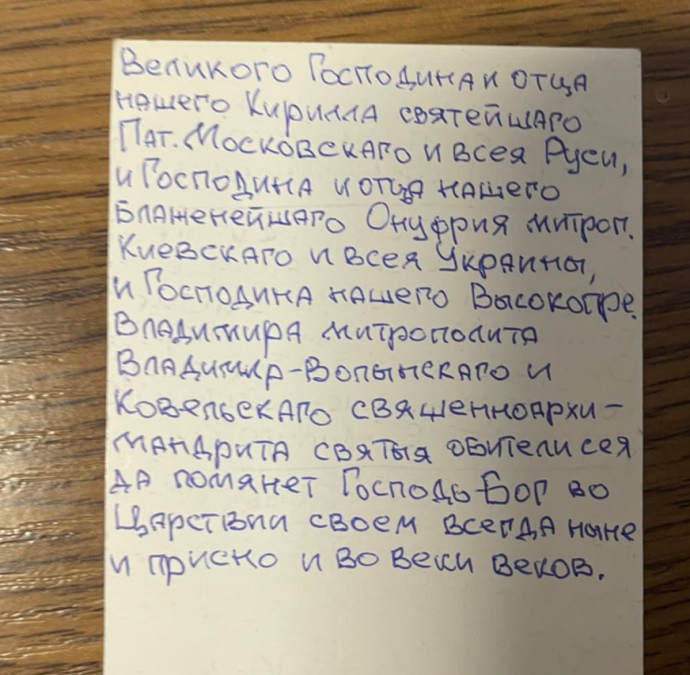 Великого Господина и отца
нашего Кирилла святейшаго
Пат. Московскаго и всея Руси,
и Господина и отца нашего
Блаженейшаго Онуфрия митроп.
Киевскаго и всея Украины,
и Господина нашего Высокопре.
Владимира митрополита
Владимир-Волынскаго и
Ковельскаго священноархи-
мандрита святыя обители сея
да помянет Господь Бог во
Царствии своем всегда ныне
и присно и во веки веков.